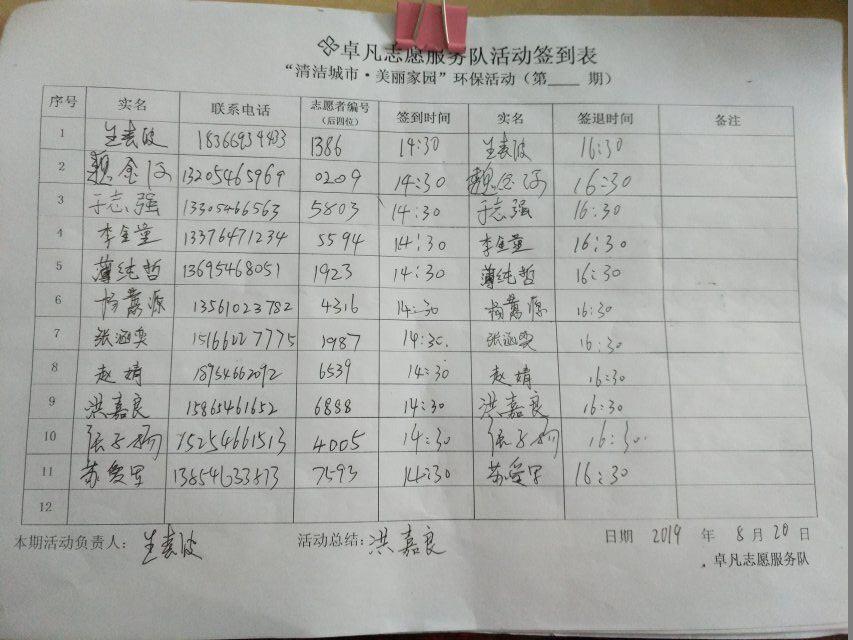 卓凡志愿服务队活动签到表
“清洁城市·美丽家园”环保活动（第____期）
序号 实名 联系电话 志愿者编号（后四位） 签到时间 实名 签退时间 备注
1 1386 14:30 16:30
2 魏金河 13205465969 0209 14:30 魏金河 16:30
3 于志强 13305466563 5803 14:30 于志强 16:30
4 李金童 13376471234 5594 14:30 李金童 16:30
5 薄纯哲 13695468051 1923 14:30 薄纯哲 16:30
6 13561023782 4316 14:30 16:30
7 张涵奕 15166227775 1987 14:30 张涵奕 16:30
8 赵婧 18954662092 6539 14:30 赵婧 16:30
9 洪嘉良 15865461652 6888 14:30 洪嘉良 16:30
10 15254661513 4005 14:30 16:30
11 苏爱军 7593 14:30 苏爱军 16:30
12
本期活动负责人： 活动总结：洪嘉良 日期 2019 年 8 月 20 日
卓凡志愿服务队